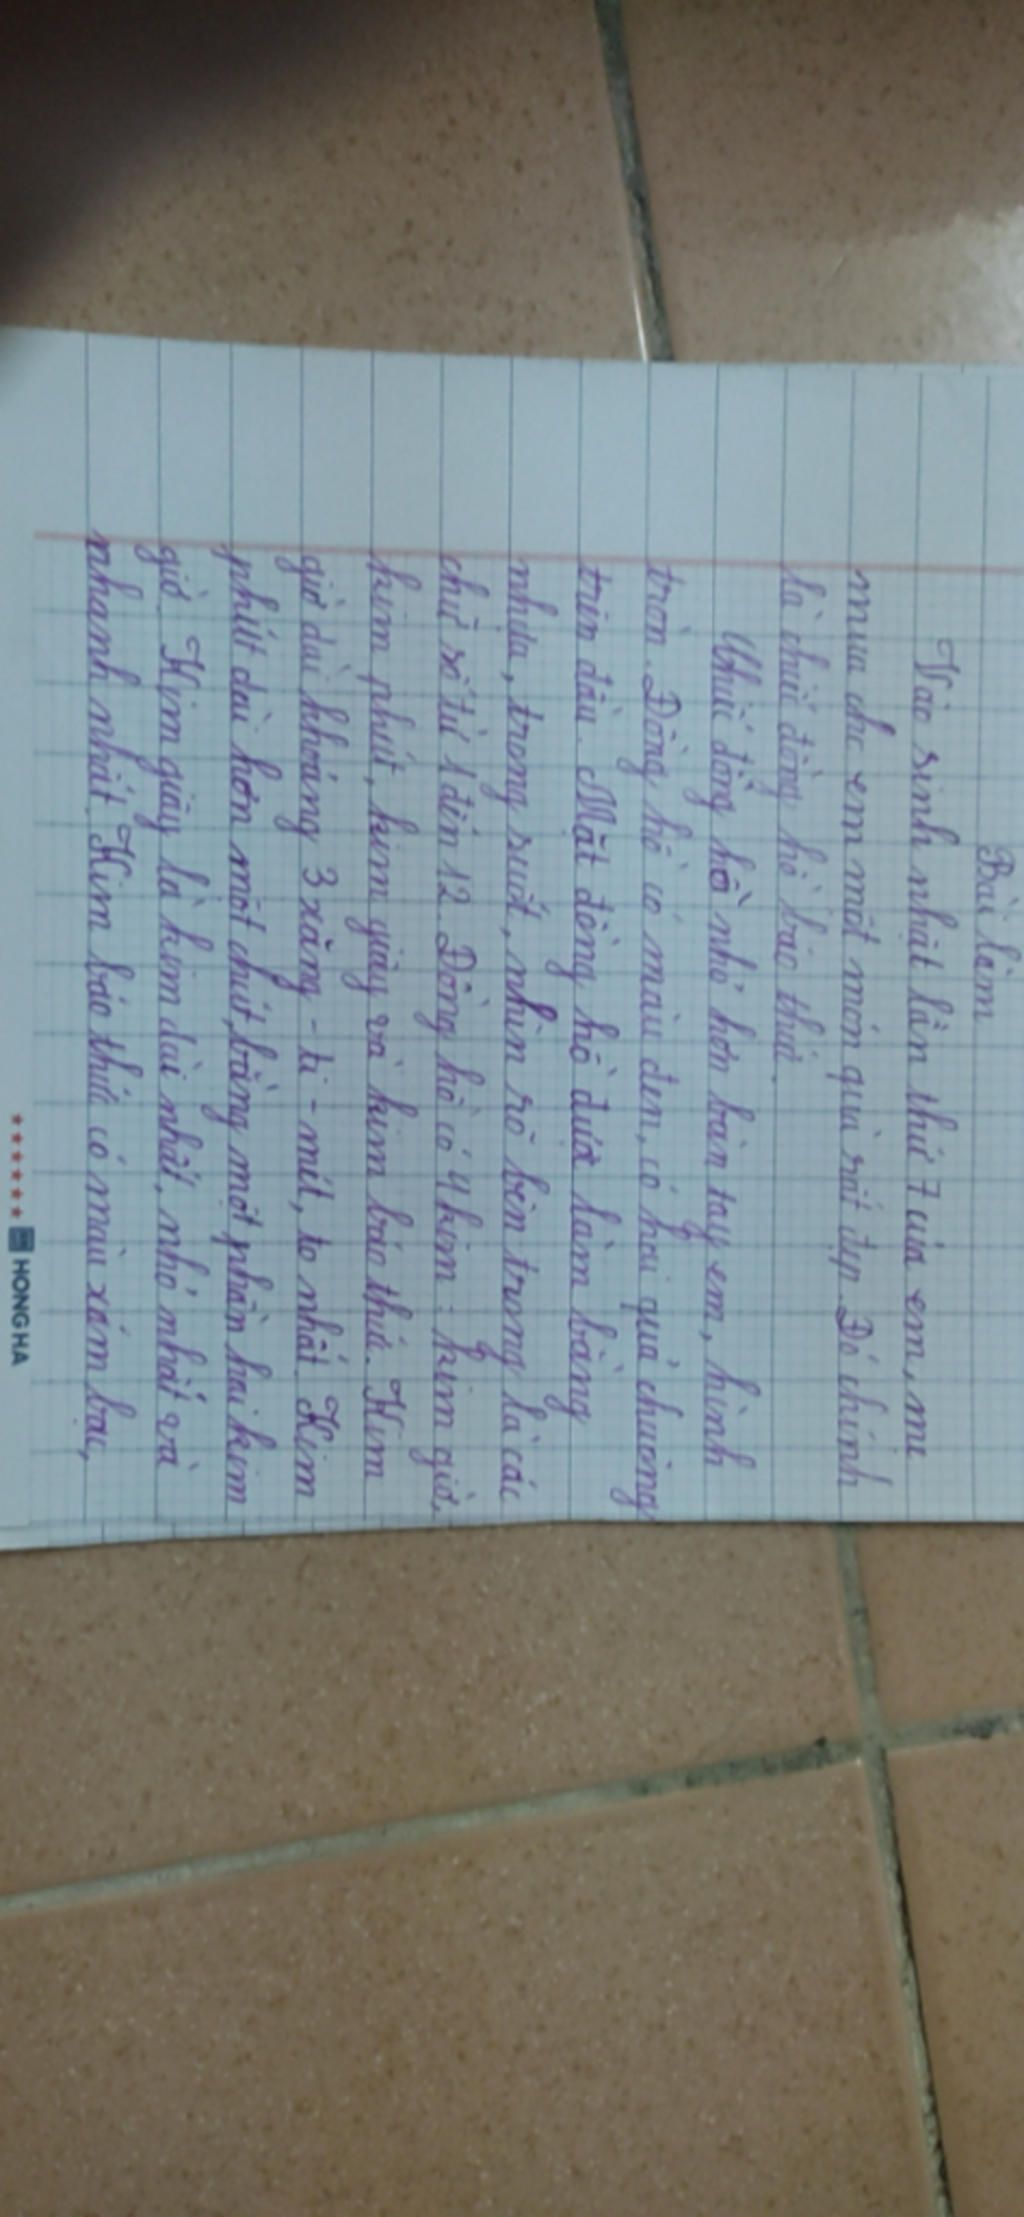 Bài làm
Vào sinh nhật lần thứ 7 của em, mẹ
mua cho em một món quà rất đẹp. Đó chính
là chiếc đồng hồ báo thức.
Chiếc đồng hồ nhỏ hơn bàn tay em, hình
tròn. Đồng hồ có màu đen, có hai quả chuông
trên đầu. Mặt đồng hồ được làm bằng
nhựa, trong suốt, nhìn rõ bên trong là các
chữ số từ 1 đến 12. Đồng hồ có 4 kim: kim giờ,
kim phút, kim giây và kim báo thức. Kim
giờ dài khoảng 3 xăng-ti-mét, to nhất. Kim
phút dài hơn một chút, bằng một phần hai kim
giờ. Kim giây là kim dài nhất, nhỏ nhất và
nhanh nhất. Kim báo thức có màu xám bạc,
HONG HA